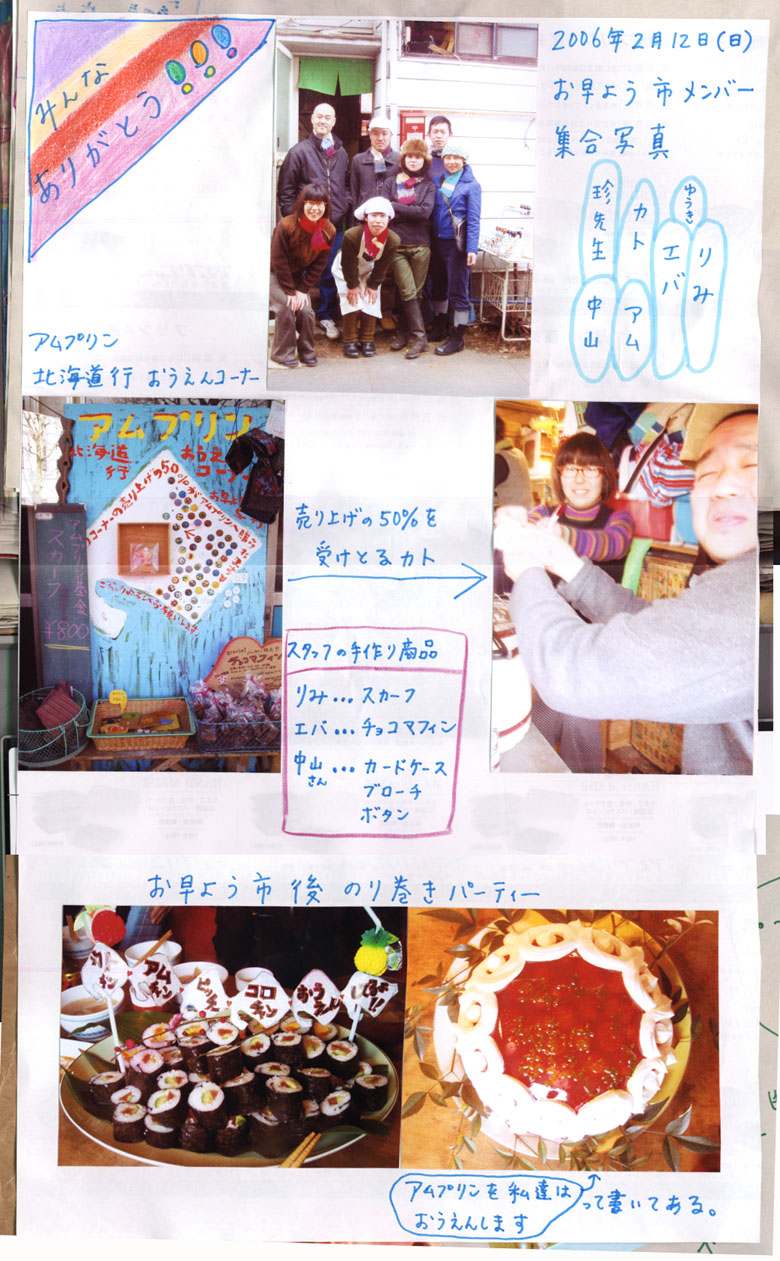 みんな
ありがとう!!!
2006年2月12日(日)
お早よう市メンバー
集合写真
珍先生
カト
ゆうき
エバ
りみ
中山
アム
アムプリン
北海道行 おうえんコーナー
アムプリン
北海道
行
コーナーの売り上げの50%が
アムプリン基金
スカーフ
¥800
チョコマフィン
売り上げの50%を
受けとるカト
スタッフの手作り商品
りみ…スカーフ
エバ…チョコマフィン
中山さん…カードケース
ブローチ
ボタン
お早よう市後 のり巻きパーティー
アム
チン
ピッチ
コロ
チン
おう
えん
してるよ
!!
アムプリンを私達は
おうえんします
って書いてある。